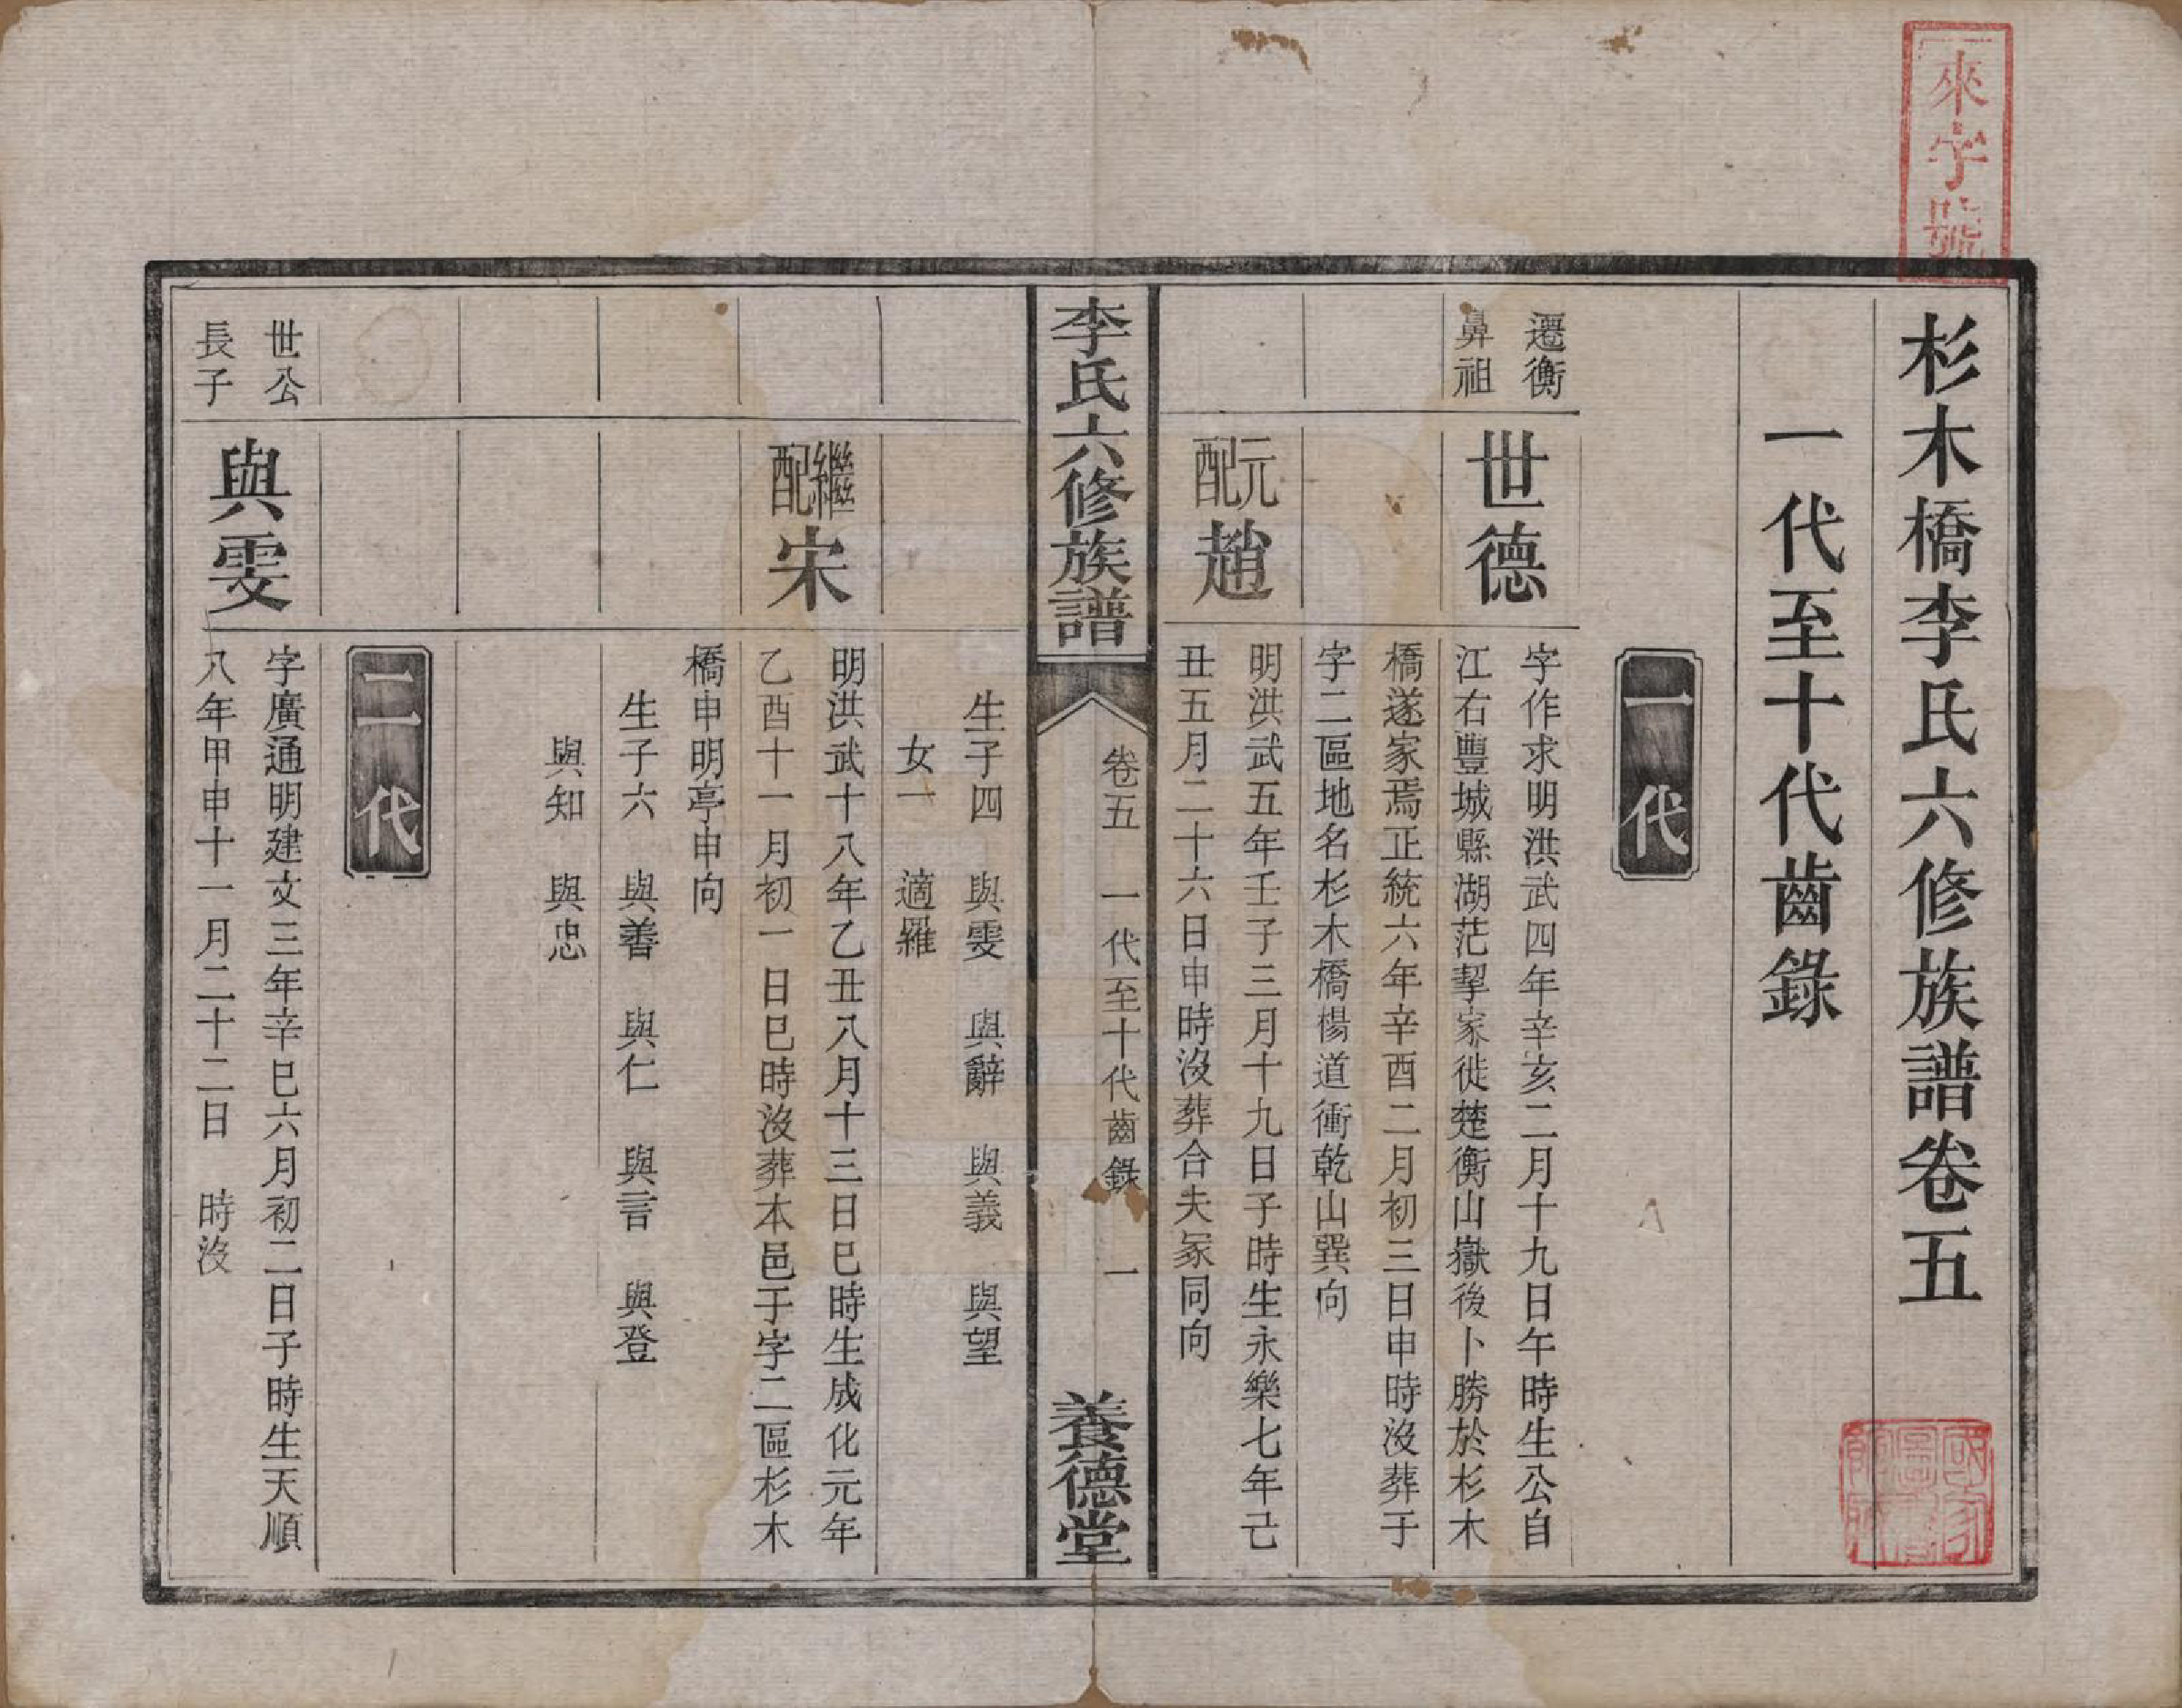 來字號
杉木橋李氏六修族譜卷五
一代至十代齒錄
一代
遷衡
鼻祖
世德
字作求明洪武四年辛亥二月十九日午時生公自
江右豐城縣湖茫挈家徙楚衡山嶽後卜勝於杉木
橋遂家焉正統六年辛酉二月初三日申時沒葬于
字二區地名杉木橋楊道衝乾山巽向
元配趙
明洪武五年壬子三月十九日子時生永樂七年己
丑五月二十六日申時沒葬合夫冢同向
李氏六修族譜
卷五 一代至十代齒錄 一
養德堂
生子四 與雯 與辭 與義 與望
女一 適羅
繼配宋
明洪武十八年乙丑八月十三日巳時生成化元年
乙酉十一月初一日巳時沒葬本邑于字二區杉木
橋申明亭申向
生子六 與善 與仁 與言 與登
與知 與忠
二代
世公
長子
與雯
字廣通明建文三年辛巳六月初二日子時生天順
八年甲申十一月二十二日 時沒